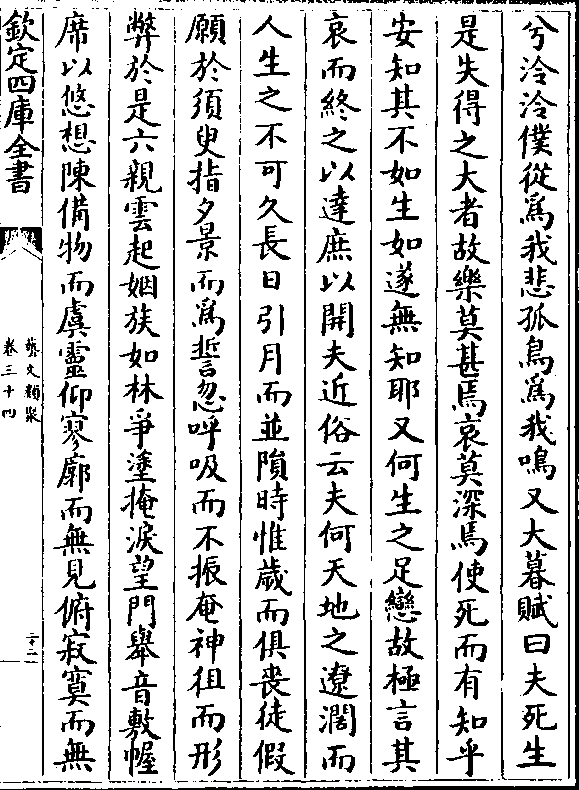 兮泠泠僕從爲我悲孤鳥爲我鳴又大暮賦曰夫死生
是失得之大者故樂莫甚焉哀莫深焉使死而有知乎
安知其不如生如遂無知耶又何生之足戀故極言其
哀而終之以達庶以開夫近俗云夫何天地之遼濶而
人生之不可久長日引月而並隕時惟歲而俱喪徒假
願於須臾指夕景而爲誓忽呼吸而不振奄神徂而形
弊於是六親雲起姻族如林爭塗掩淚望門舉音敷幄
席以悠想陳備物而虞靈仰寥廓而無見俯寂寞而無
欽定四庫全書
藝文類聚
卷三十四
二十二